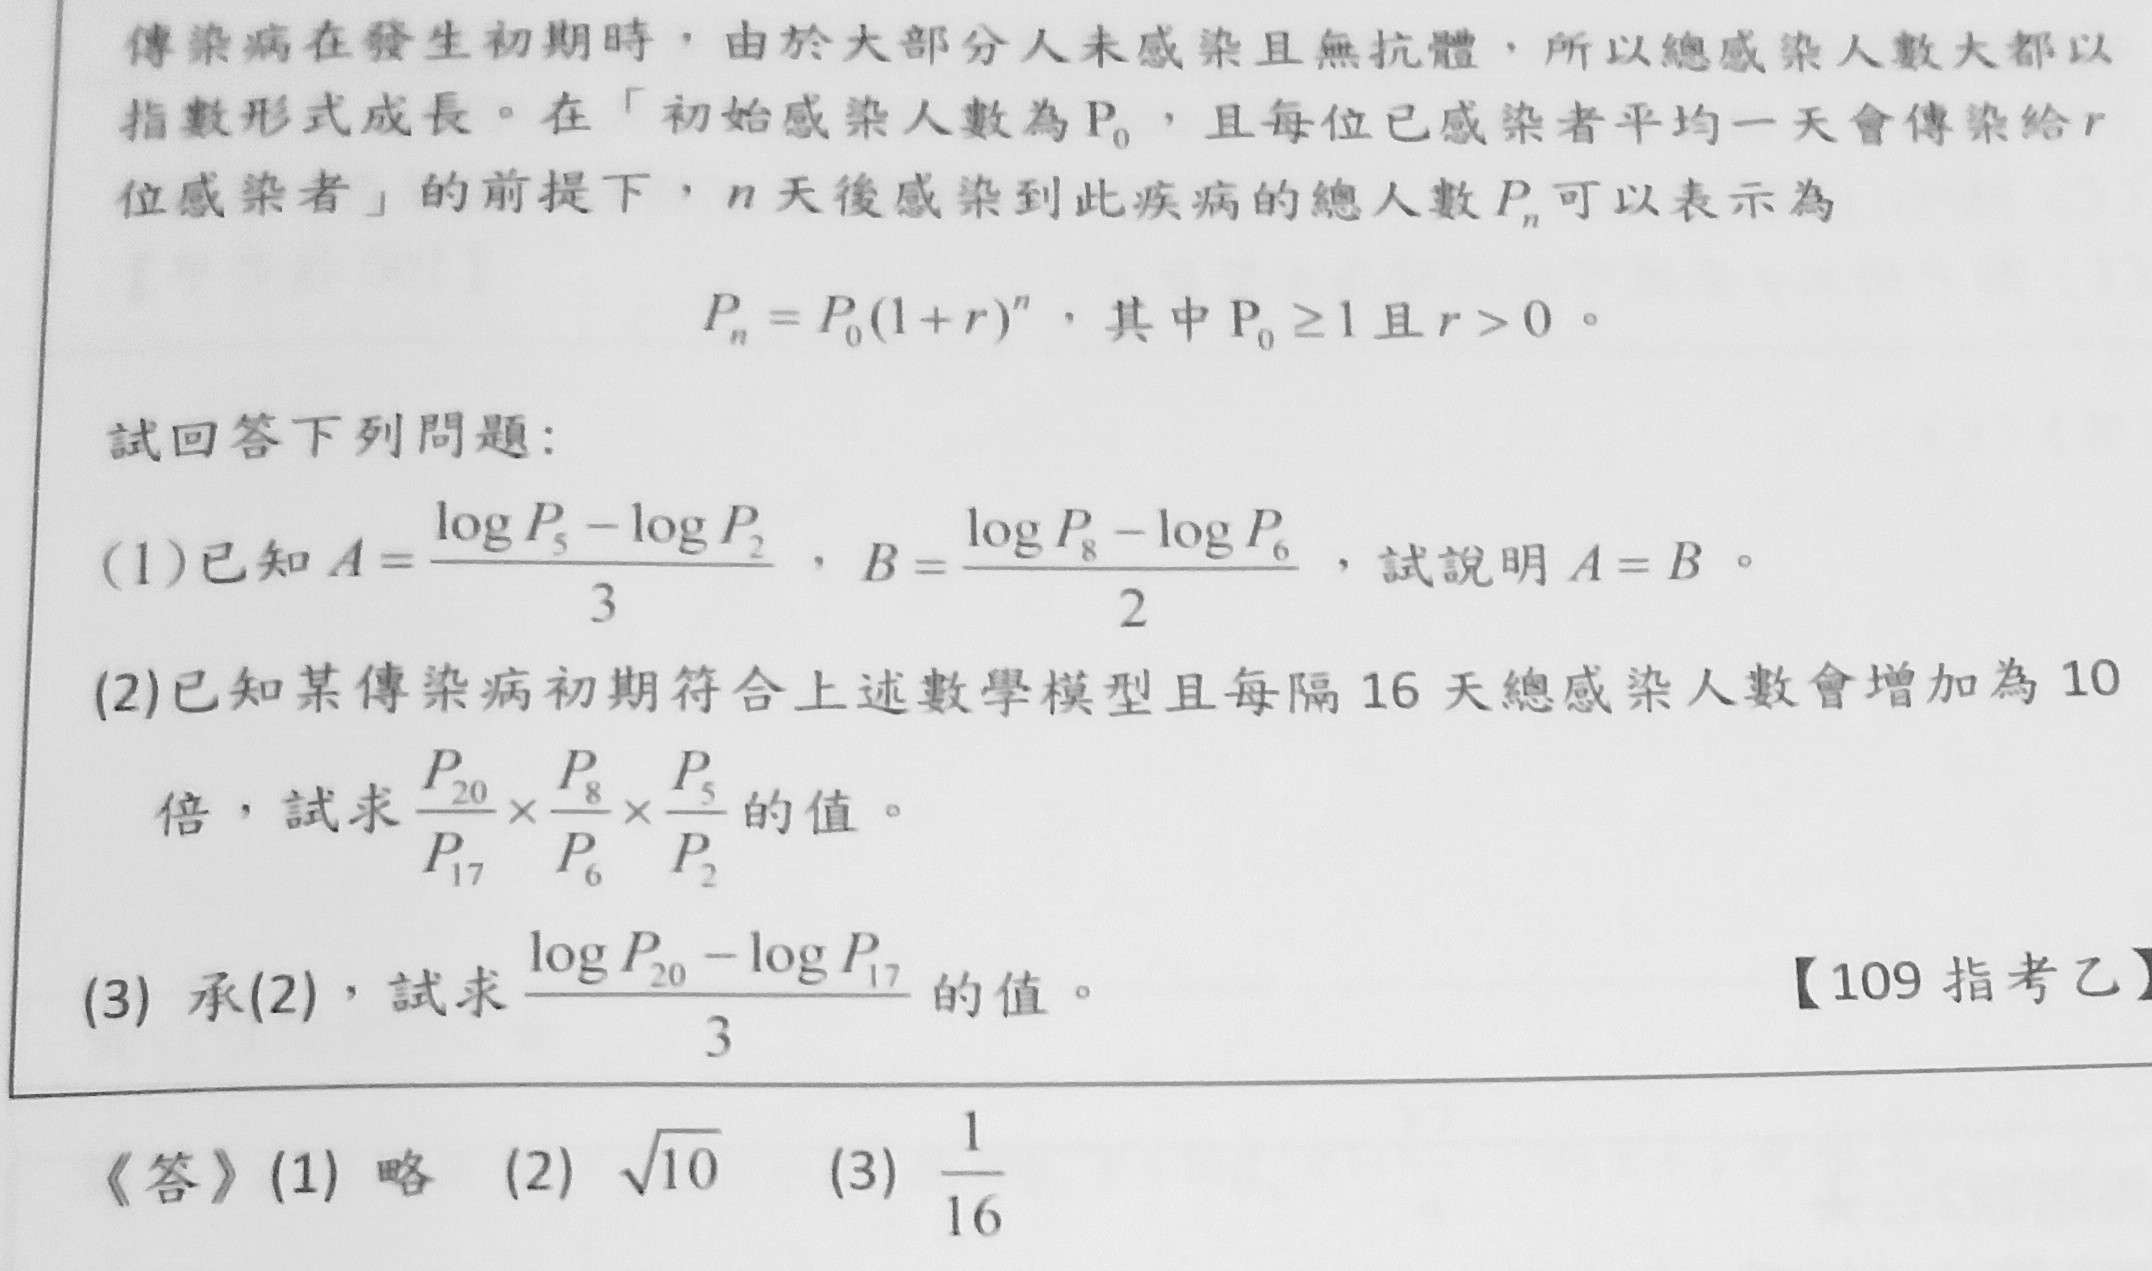 傳染病在發生初期時，由於大部分人未感染且無抗體，所以總感染人數大都以
指數形式成長。在「初始感染人數為P₀，且每位已感染者平均一天會傳染給r
位感染者」的前提下，n天後感染到此疾病的總人數Pₙ可以表示為
Pₙ = P₀(1+r)ⁿ，其中P₀ ≥ 1且r > 0。
試回答下列問題:
(1)已知 A = (log P₅ − log P₂)/3，B = (log P₈ − log P₆)/2，試說明 A = B。
(2)已知某傳染病初期符合上述數學模型且每隔 16 天總感染人數會增加為 10
倍，試求 P₂₀/P₁₇ × P₈/P₆ × P₅/P₂ 的值。
(3) 承(2)，試求 (log P₂₀ − log P₁₇)/3 的值。 【109 指考乙】
《答》(1) 略 (2) √10 (3) 1/16